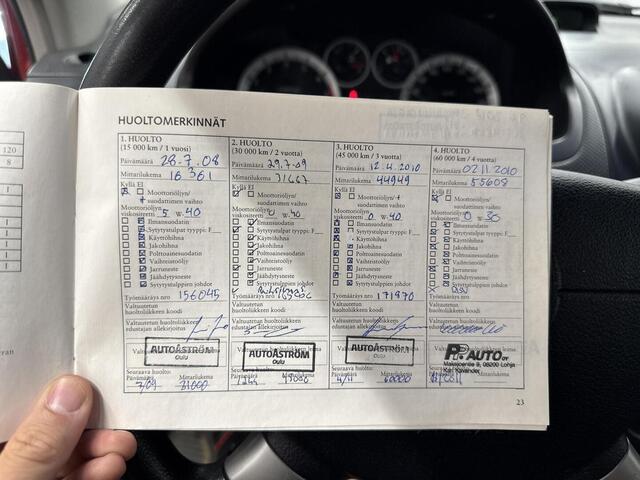 120
8
1
1
1
1
1
1
HUOLTOMERKINNÄT
1. HUOLTO
(15 000 km / 1 vuosi)
Päivämäärä 28.7.08
Mittarilukema 16 361
Kyllä Ei
Moottoriöljyn/
suodattimen vaihto
Moottoriöljyn
viskositeetti 5 w 40
Ilmansuodatin
Sytytystulpat tyyppi: F
Käyttöhihna
Jakohihna
Polttoainesuodatin
Vaihteistoöljy
Jarruneste
Jäähdytysneste
Sytytystulppien johdot
Työmääräys nro 156045
Valtuutetun
huoltoliikkeen koodi
Valtuutetun huoltoliikkeen
edustajan allekirjoitus
Valtuutetun huoltoliikkeen leima
AUTOÅSTRÖM
OULU
Seuraava huolto:
Päivämäärä Mittarilukema
7/09 31000
2. HUOLTO
(30 000 km / 2 vuotta)
Päivämäärä 29.7.09
Mittarilukema
Kyllä Ei
Moottoriöljyn/
suodattimen vaihto
Moottoriöljyn
viskositeetti 0 w 40
Ilmansuodatin
Sytytystulpat tyyppi: F
Käyttöhihna
Jakohihna
Polttoainesuodatin
Vaihteistoöljy
Jarruneste
Jäähdytysneste
Sytytystulppien johdot
Työmääräys nro
Valtuutetun
huoltoliikkeen koodi
Valtuutetun huoltoliikkeen
edustajan allekirjoitus
AUTOÅSTRÖM
OULU
Seuraava huolto:
Päivämäärä Mittarilukema
3. HUOLTO
(45 000 km / 3 vuotta)
Päivämäärä 12.4.2010
Mittarilukema 44949
Kyllä Ei
Moottoriöljyn/
suodattimen vaihto
Moottoriöljyn
viskositeetti 0 w 40
Ilmansuodatin
Sytytystulpat tyyppi: F
Käyttöhihna
Jakohihna
Polttoainesuodatin
Vaihteistoöljy
Jarruneste
Jäähdytysneste
Sytytystulppien johdot
Työmääräys nro 171970
Valtuutetun
huoltoliikkeen koodi
Valtuutetun huoltoliikkeen
edustajan allekirjoitus
AUTOÅSTRÖM
OULU
Seuraava huolto:
Päivämäärä Mittarilukema
4/11 60000
4. HUOLTO
(60 000 km / 4 vuotta)
Päivämäärä 02 11 2010
Mittarilukema 55608
Kyllä Ei
Moottoriöljyn/
suodattimen vaihto
Moottoriöljyn
viskositeetti 0 w 30
Ilmansuodatin
Sytytystulpat tyyppi: F
Käyttöhihna
Jakohihna
Polttoainesuodatin
Vaihteistoöljy
Jarruneste
Jäähdytysneste
Sytytystulppien johdot
Työmääräys nro
Valtuutetun
huoltoliikkeen koodi
Valtuutetun huoltoliikkeen
edustajan allekirjoitus
AUTO OY
08200 Lohja
Seuraava huolto:
Päivämäärä Mittarilukema
23